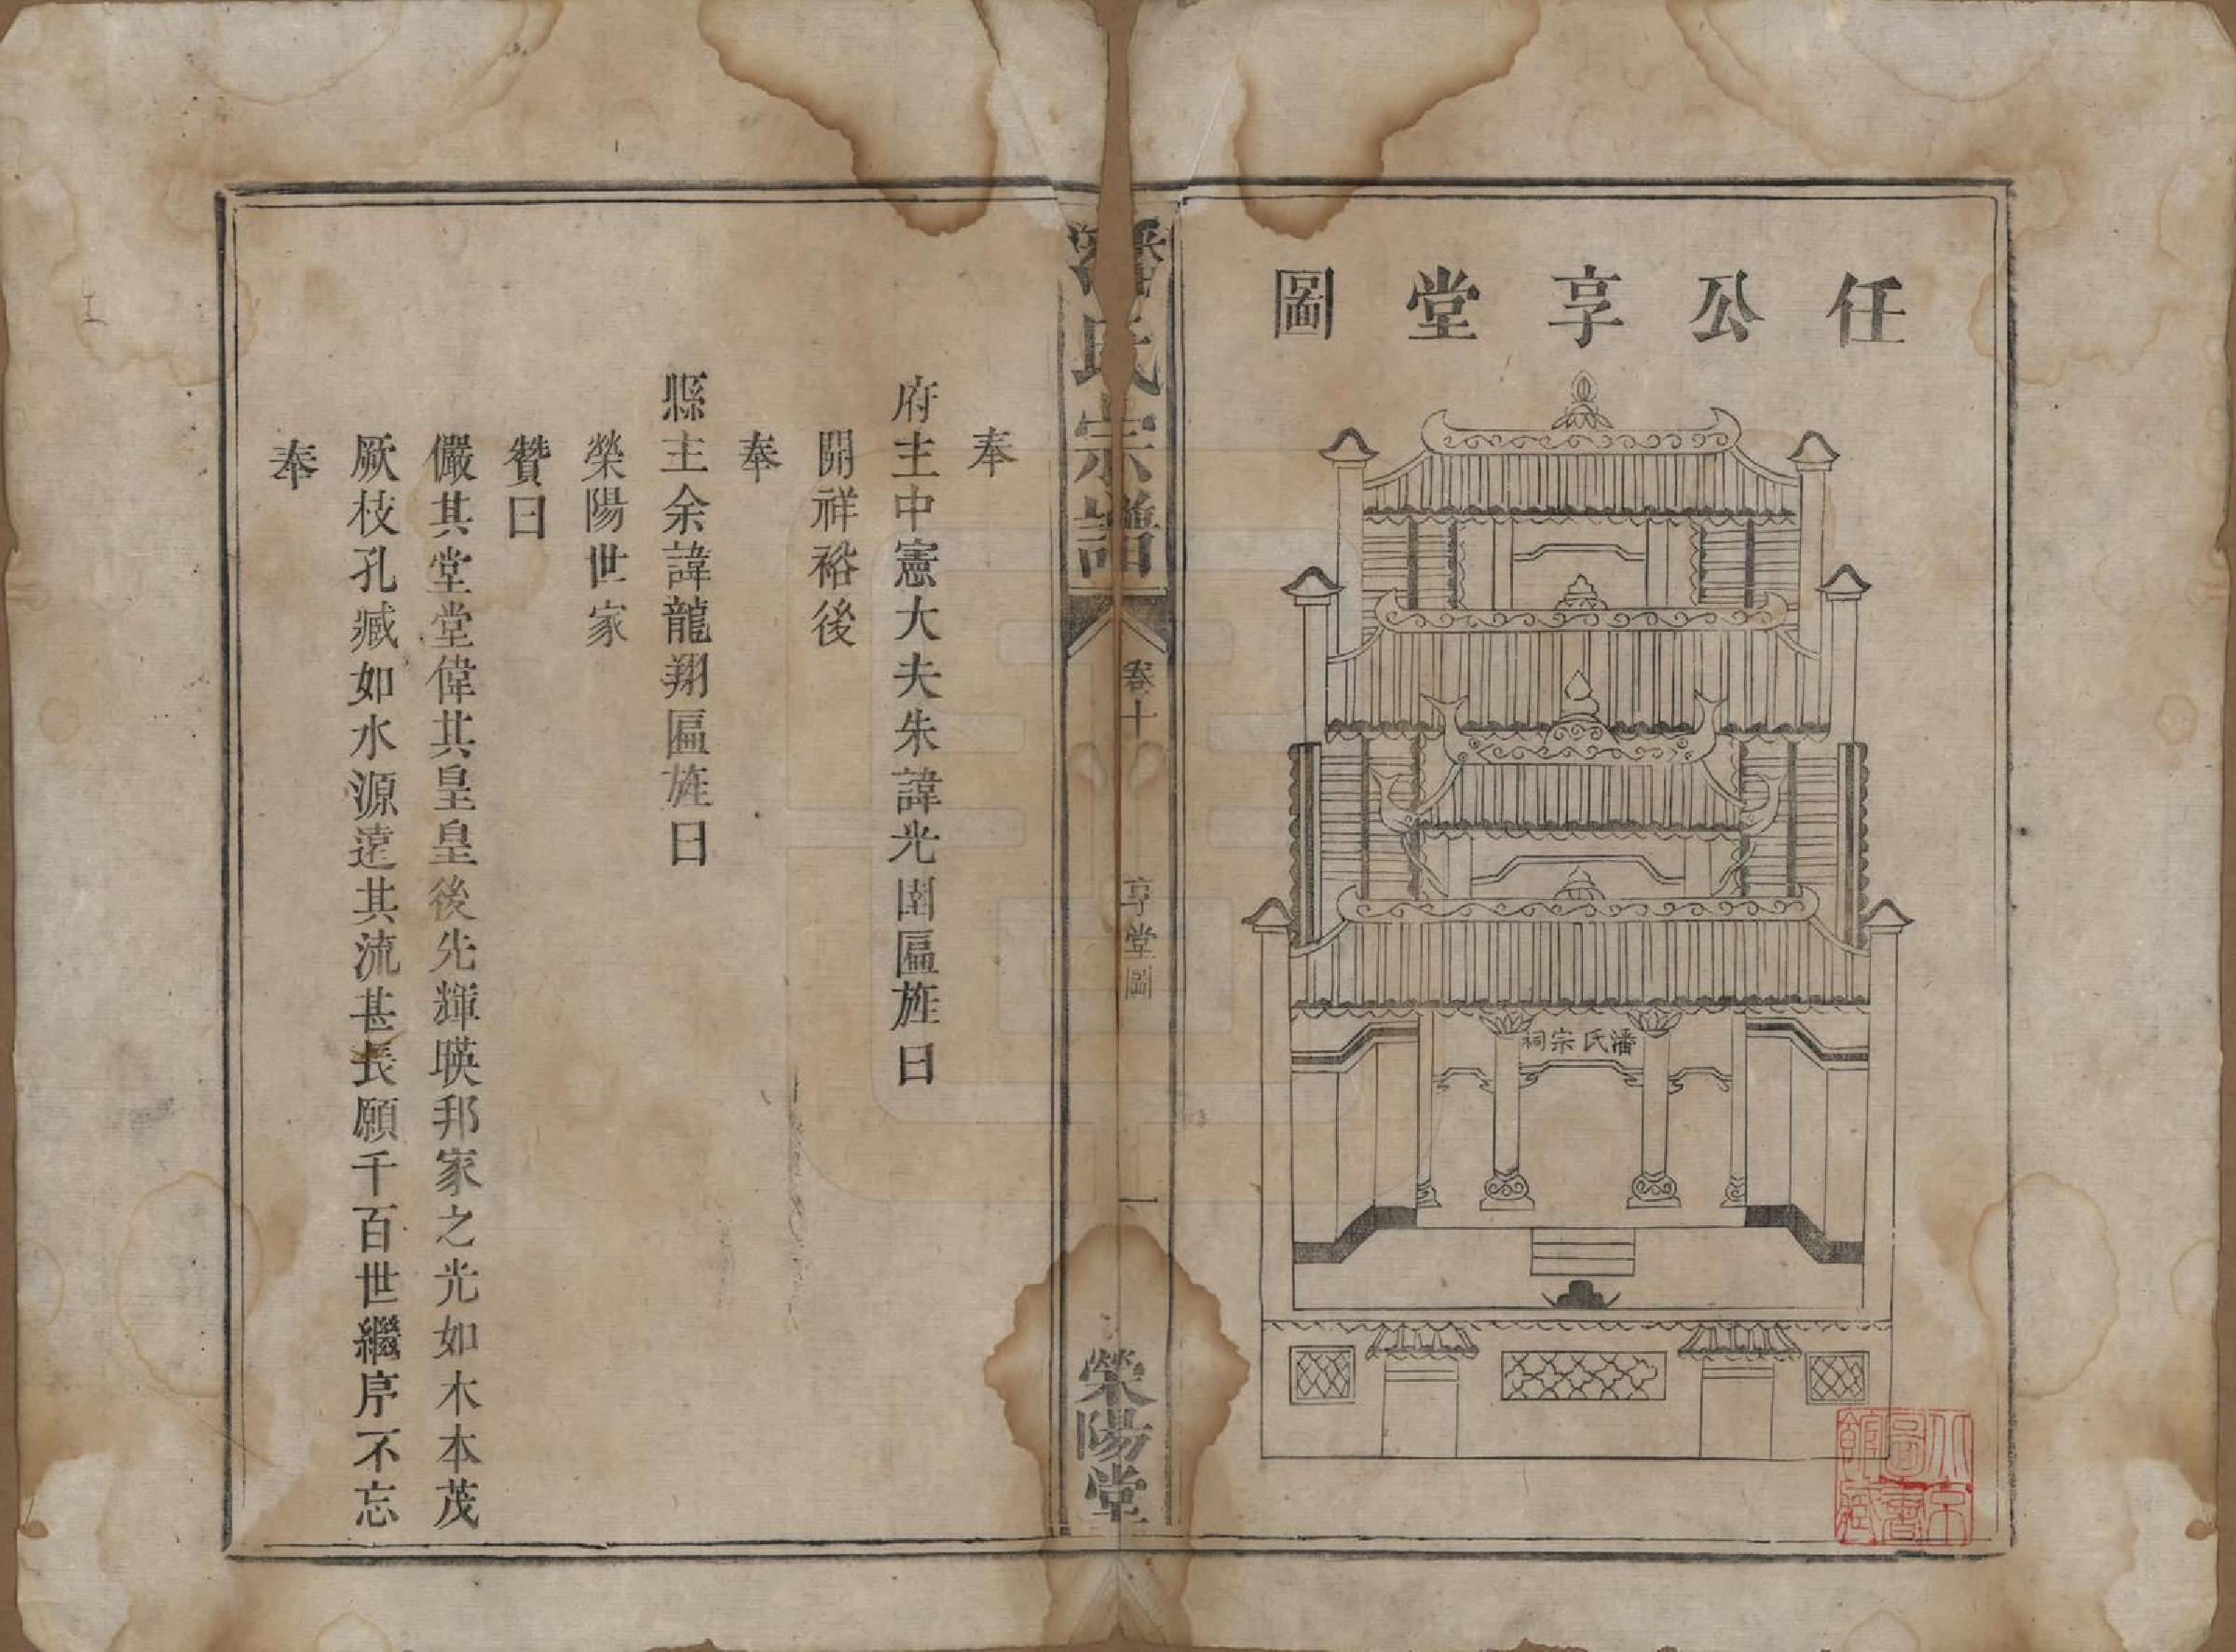 任公享堂圖
潘氏宗祠
潘氏宗譜
卷十
享堂圖
一
滎陽堂
奉
府主中憲大夫朱諱光圉匾旌曰
開祥裕後
奉
縣主余諱龍翔匾旌曰
滎陽世家
贊曰
儼其堂堂偉其皇皇後先輝暎邦家之光如木本茂
厥枝孔臧如水源遠其流甚長願千百世繼序不忘
奉
北京圖書館藏